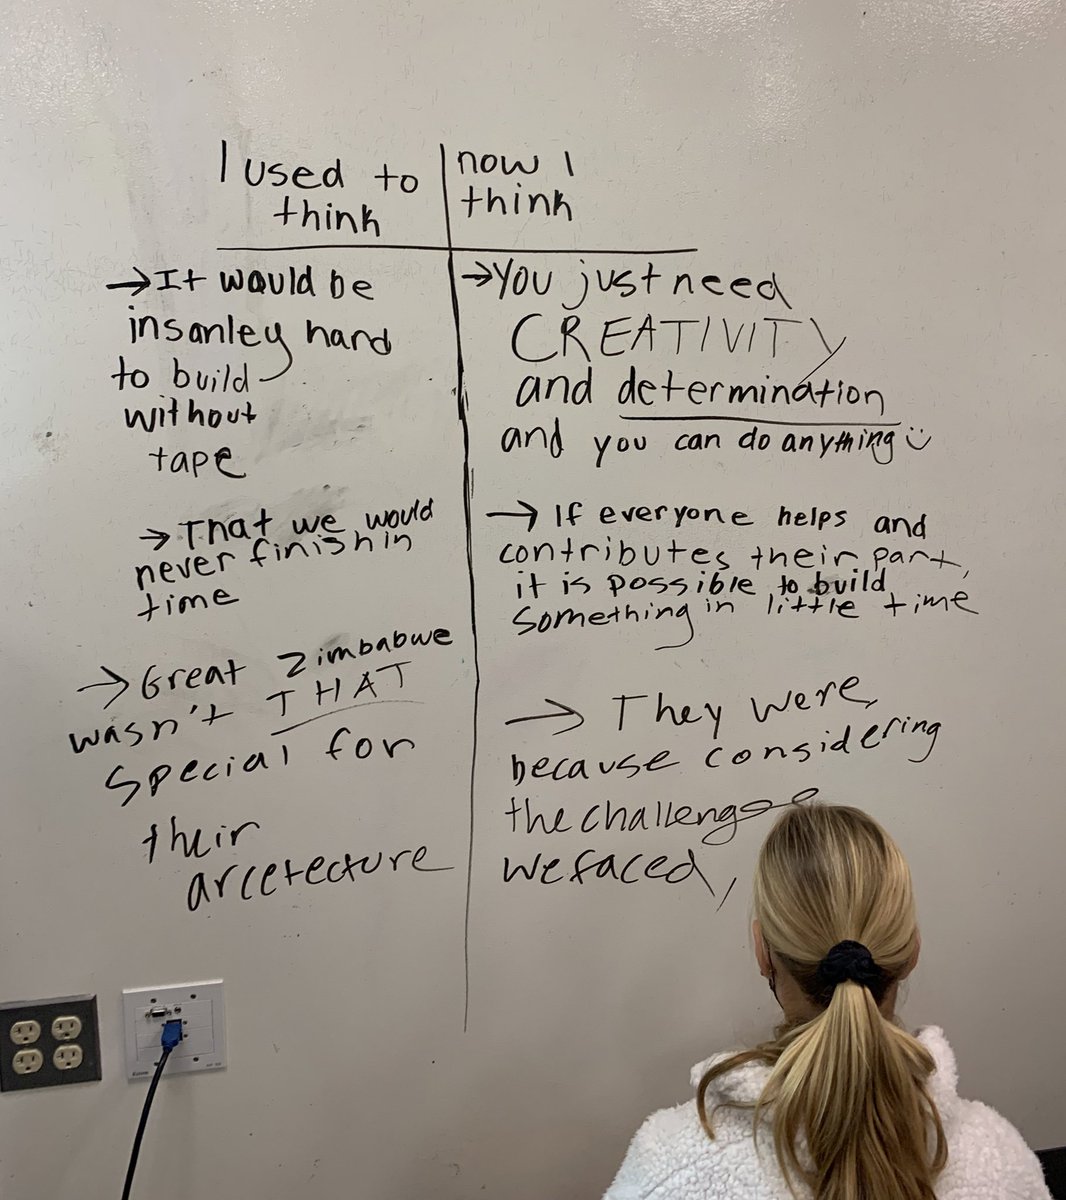 I used to
think
It would be
insanley hard
to build
without
tape
That we would
never finish in
time
Great Zimbabwe
wasn't THAT
special for
their
arcetecture
now I
think
You just need
CREATIVITY
and determination
and you can do anything
If everyone helps and
contributes their part,
it is possible to build
something in little time
They were,
because considering
the challenges
we faced,